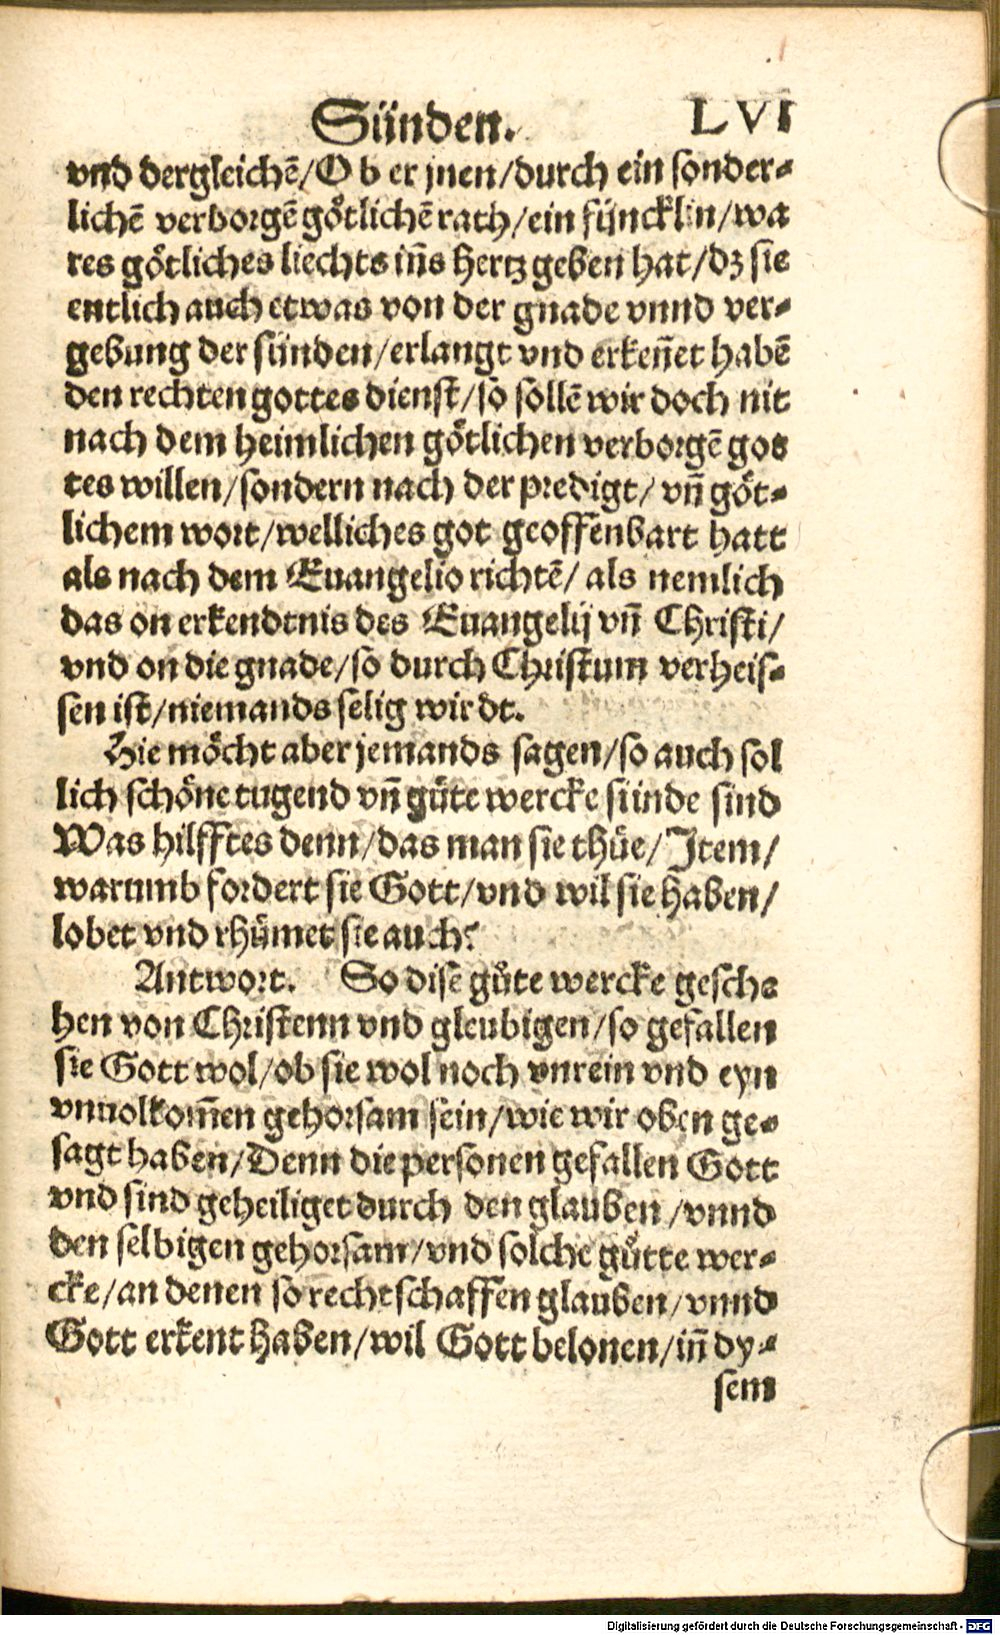 Sünden. LVI
vnd dergleichē/Ob er jnen/durch ein sonder-
lichē verborgē götlichē rath/ein füncklin/wa
res götliches liechts iñs hertz geben hat/dz sie
entlich auch etwas von der gnade vnnd ver-
gebung der sünden/erlangt vnd erkeñet habē
den rechten gottes dienst/so sollē wir doch nit
nach dem heimlichen götlichen verborgē gos
tes willen/sondern nach der predigt/ vñ göt-
lichem wort/welliches got geoffenbart hatt
als nach dem Euangelio richtē/ als nemlich
das on erkendtnis des Euangelij vñ Christi/
vnd on die gnade/so durch Christum verheis-
sen ist/niemands selig wirdt.
Hie möcht aber jemands sagen/so auch sol
lich schöne tugend vñ gůte wercke sünde sind
Was hilfftes denn/das man sie thüe/Item/
warumb fordert sie Gott/vnd wil sie haben/
lobet vnd rhümet sie auch?
Antwort. So dise gůte wercke gesche
hen von Christenn vnd gleubigen/so gefallen
sie Gott wol/ob sie wol noch vnrein vnd eyn
vnuolkom̃en gehorsam sein/wie wir oben ge-
sagt haben/Denn die personen gefallen Gott
vnd sind geheiliget durch den glauben/vnnd
den selbigen gehorsam/vnd solche gůtte wer-
cke/an denen so rechtschaffen glauben/vnnd
Gott erkent haben/wil Gott belonen/iñ dy-
sem
Digitalisierung gefördert durch die Deutsche Forschungsgemeinschaft - DFG